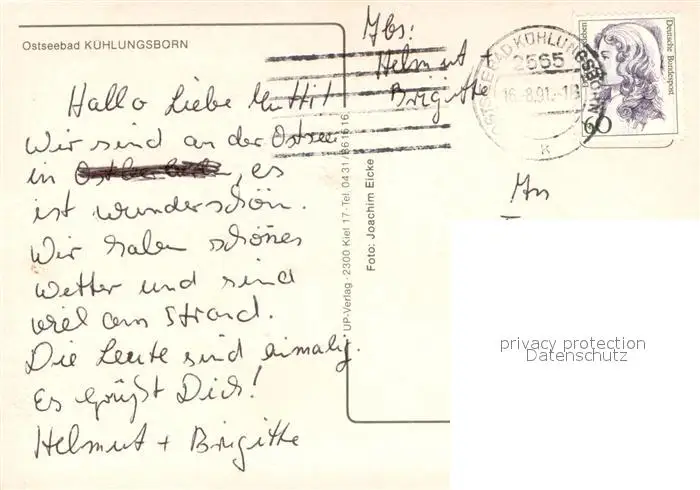 Ostseebad KÜHLUNGSBORN
Hallo Liebe Mutti!
Wir sind an der Ostsee
in , es
ist wunderschön.
Wir haben schönes
Wetter und sind
viel am Strand.
Die Leute sind einmalig.
Es grüßt Dich!
Helmut + Brigitte
UP-Verlag · 2300 Kiel 17 · Tel. 04 31/
Foto: Joachim Eicke
Abs:
Helmut +
Brigitte
OSTSEEBAD KÜHLUNGSBORN
2565
16.-8.91.-18
k
Deutsche Bundespost
60
An
privacy protection
Datenschutz